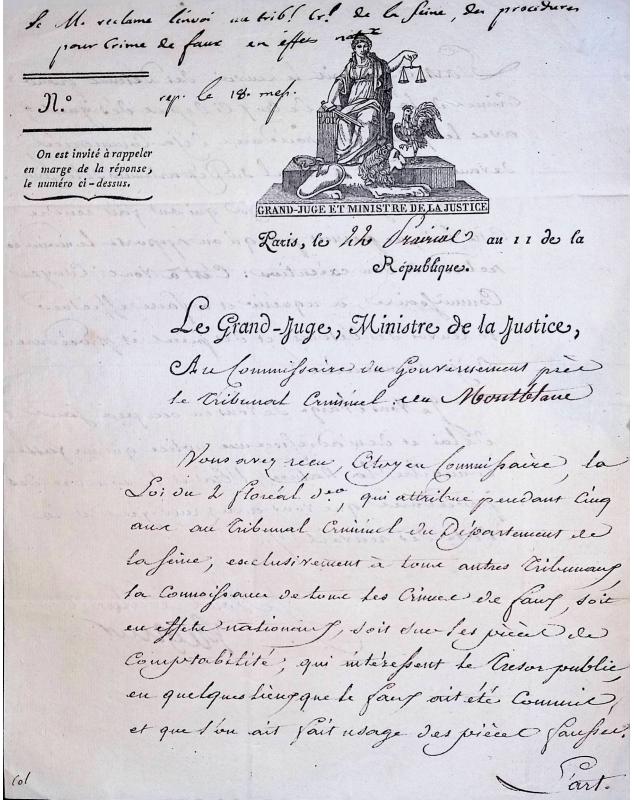 Le M. reclame l'envoi au trib.l Cr.l de la Seine, des procedures
pour Crime de faux en effets nat.x
N.o
rep. le 18. mes.
On est invité à rappeler
en marge de la réponse,
le numéro ci-dessus.
GRAND-JUGE ET MINISTRE DE LA JUSTICE
Paris, le 22 Prairial an 11 de la
République.
Le Grand-Juge, Ministre de la Justice,
Au Commissaire du Gouvernement près
le Tribunal Criminel du Montblanc
Vous avez reçu, Citoyen Commissaire, la
Loi du 2 floréal d.er, qui attribue pendant Cinq
ans au Tribunal Criminel du Département de
la Seine, exclusivement à tous autres Tribunaux,
la Connaissance de tous les Crimes de faux, soit
en effets nationaux, soit sur les pièces de
Comptabilité, qui intéressent le Trésor public,
en quelques lieux que le faux ait été Commis,
et que l'on ait fait usage des pièces fausses.
L'art.